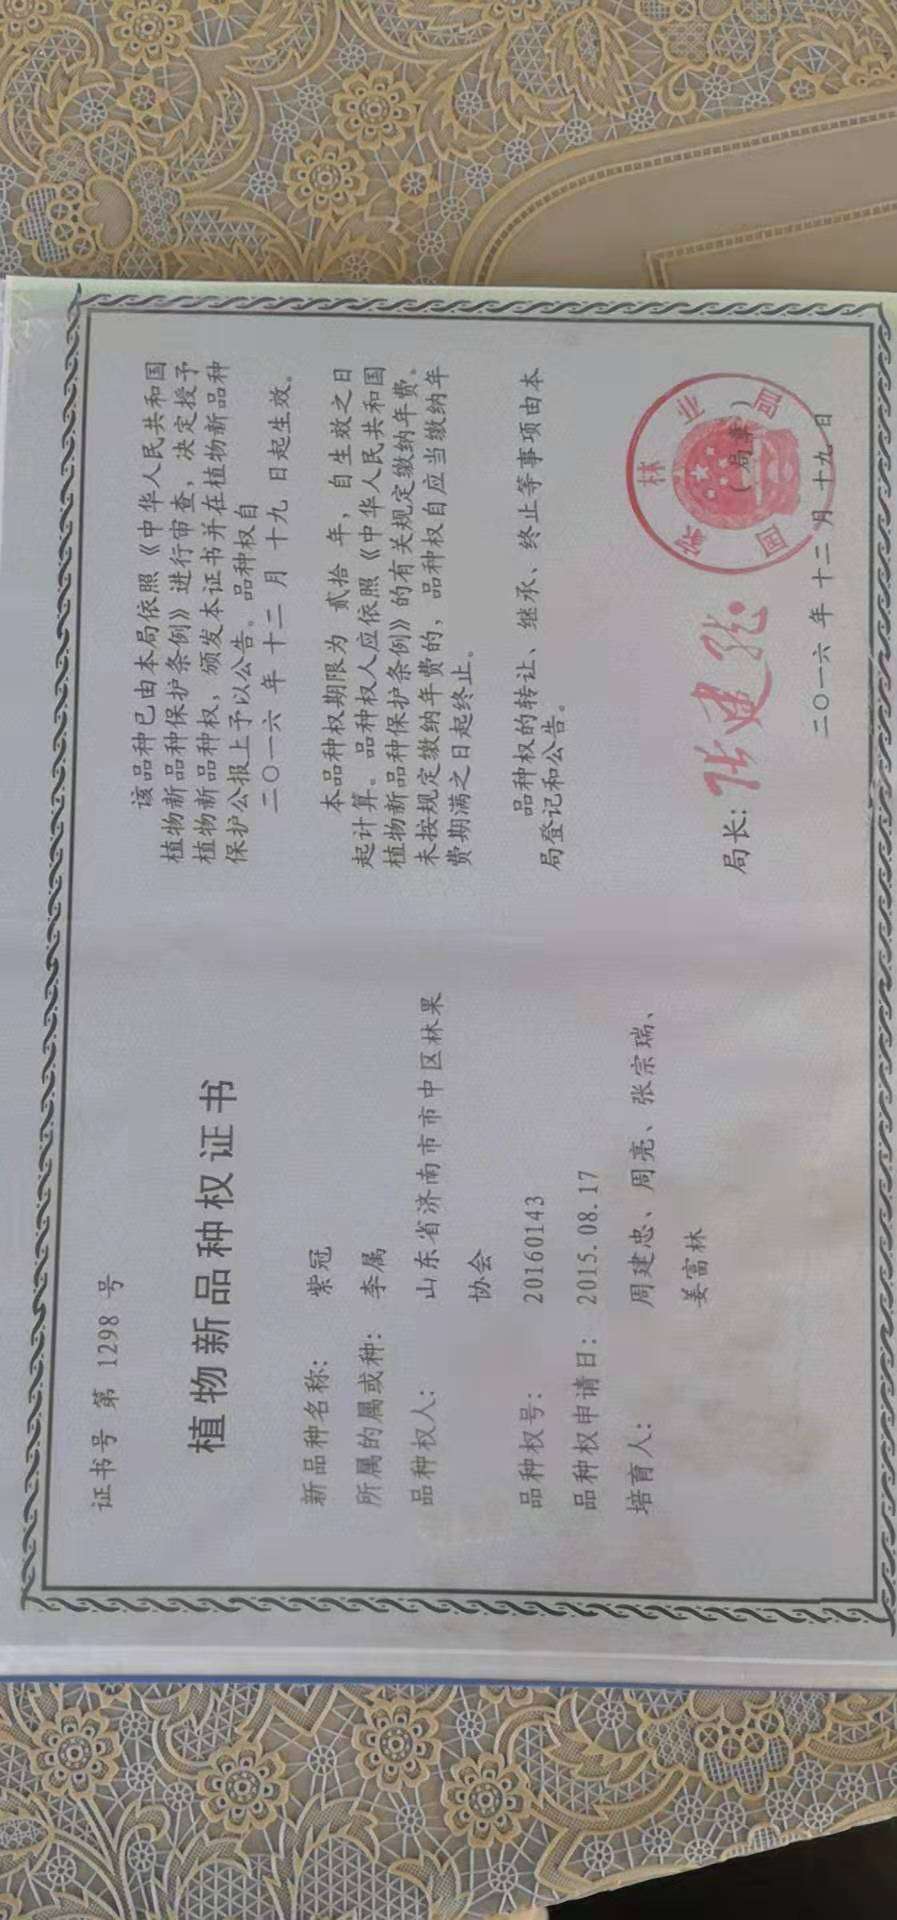 证书号 第 1298 号
植物新品种权证书
新品种名称： 紫冠
所属的属或种： 李属
品种权人： 山东省济南市市中区林果
协会
品种权号： 20160143
品种权申请日： 2015.08.17
培育人： 周建忠、周亮、张宗瑞、
姜富林
该品种已由本局依照《中华人民共和国
植物新品种保护条例》进行审查，决定授予
植物新品种权，颁发本证书并在植物新品种
保护公报上予以公告。品种权自
二〇一六 年 十二 月 十九 日起生效。
本品种权期限为 贰拾 年，自生效之日
起计算。品种权人应依照《中华人民共和国
植物新品种保护条例》的有关规定缴纳年费。
未按规定缴纳年费的，品种权自应当缴纳年
费期满之日起终止。
品种权的转让、继承、终止等事项由本
局登记和公告。
局长： 张建龙
国家林业局
（局章）
二〇一六 年 十二 月 十九 日